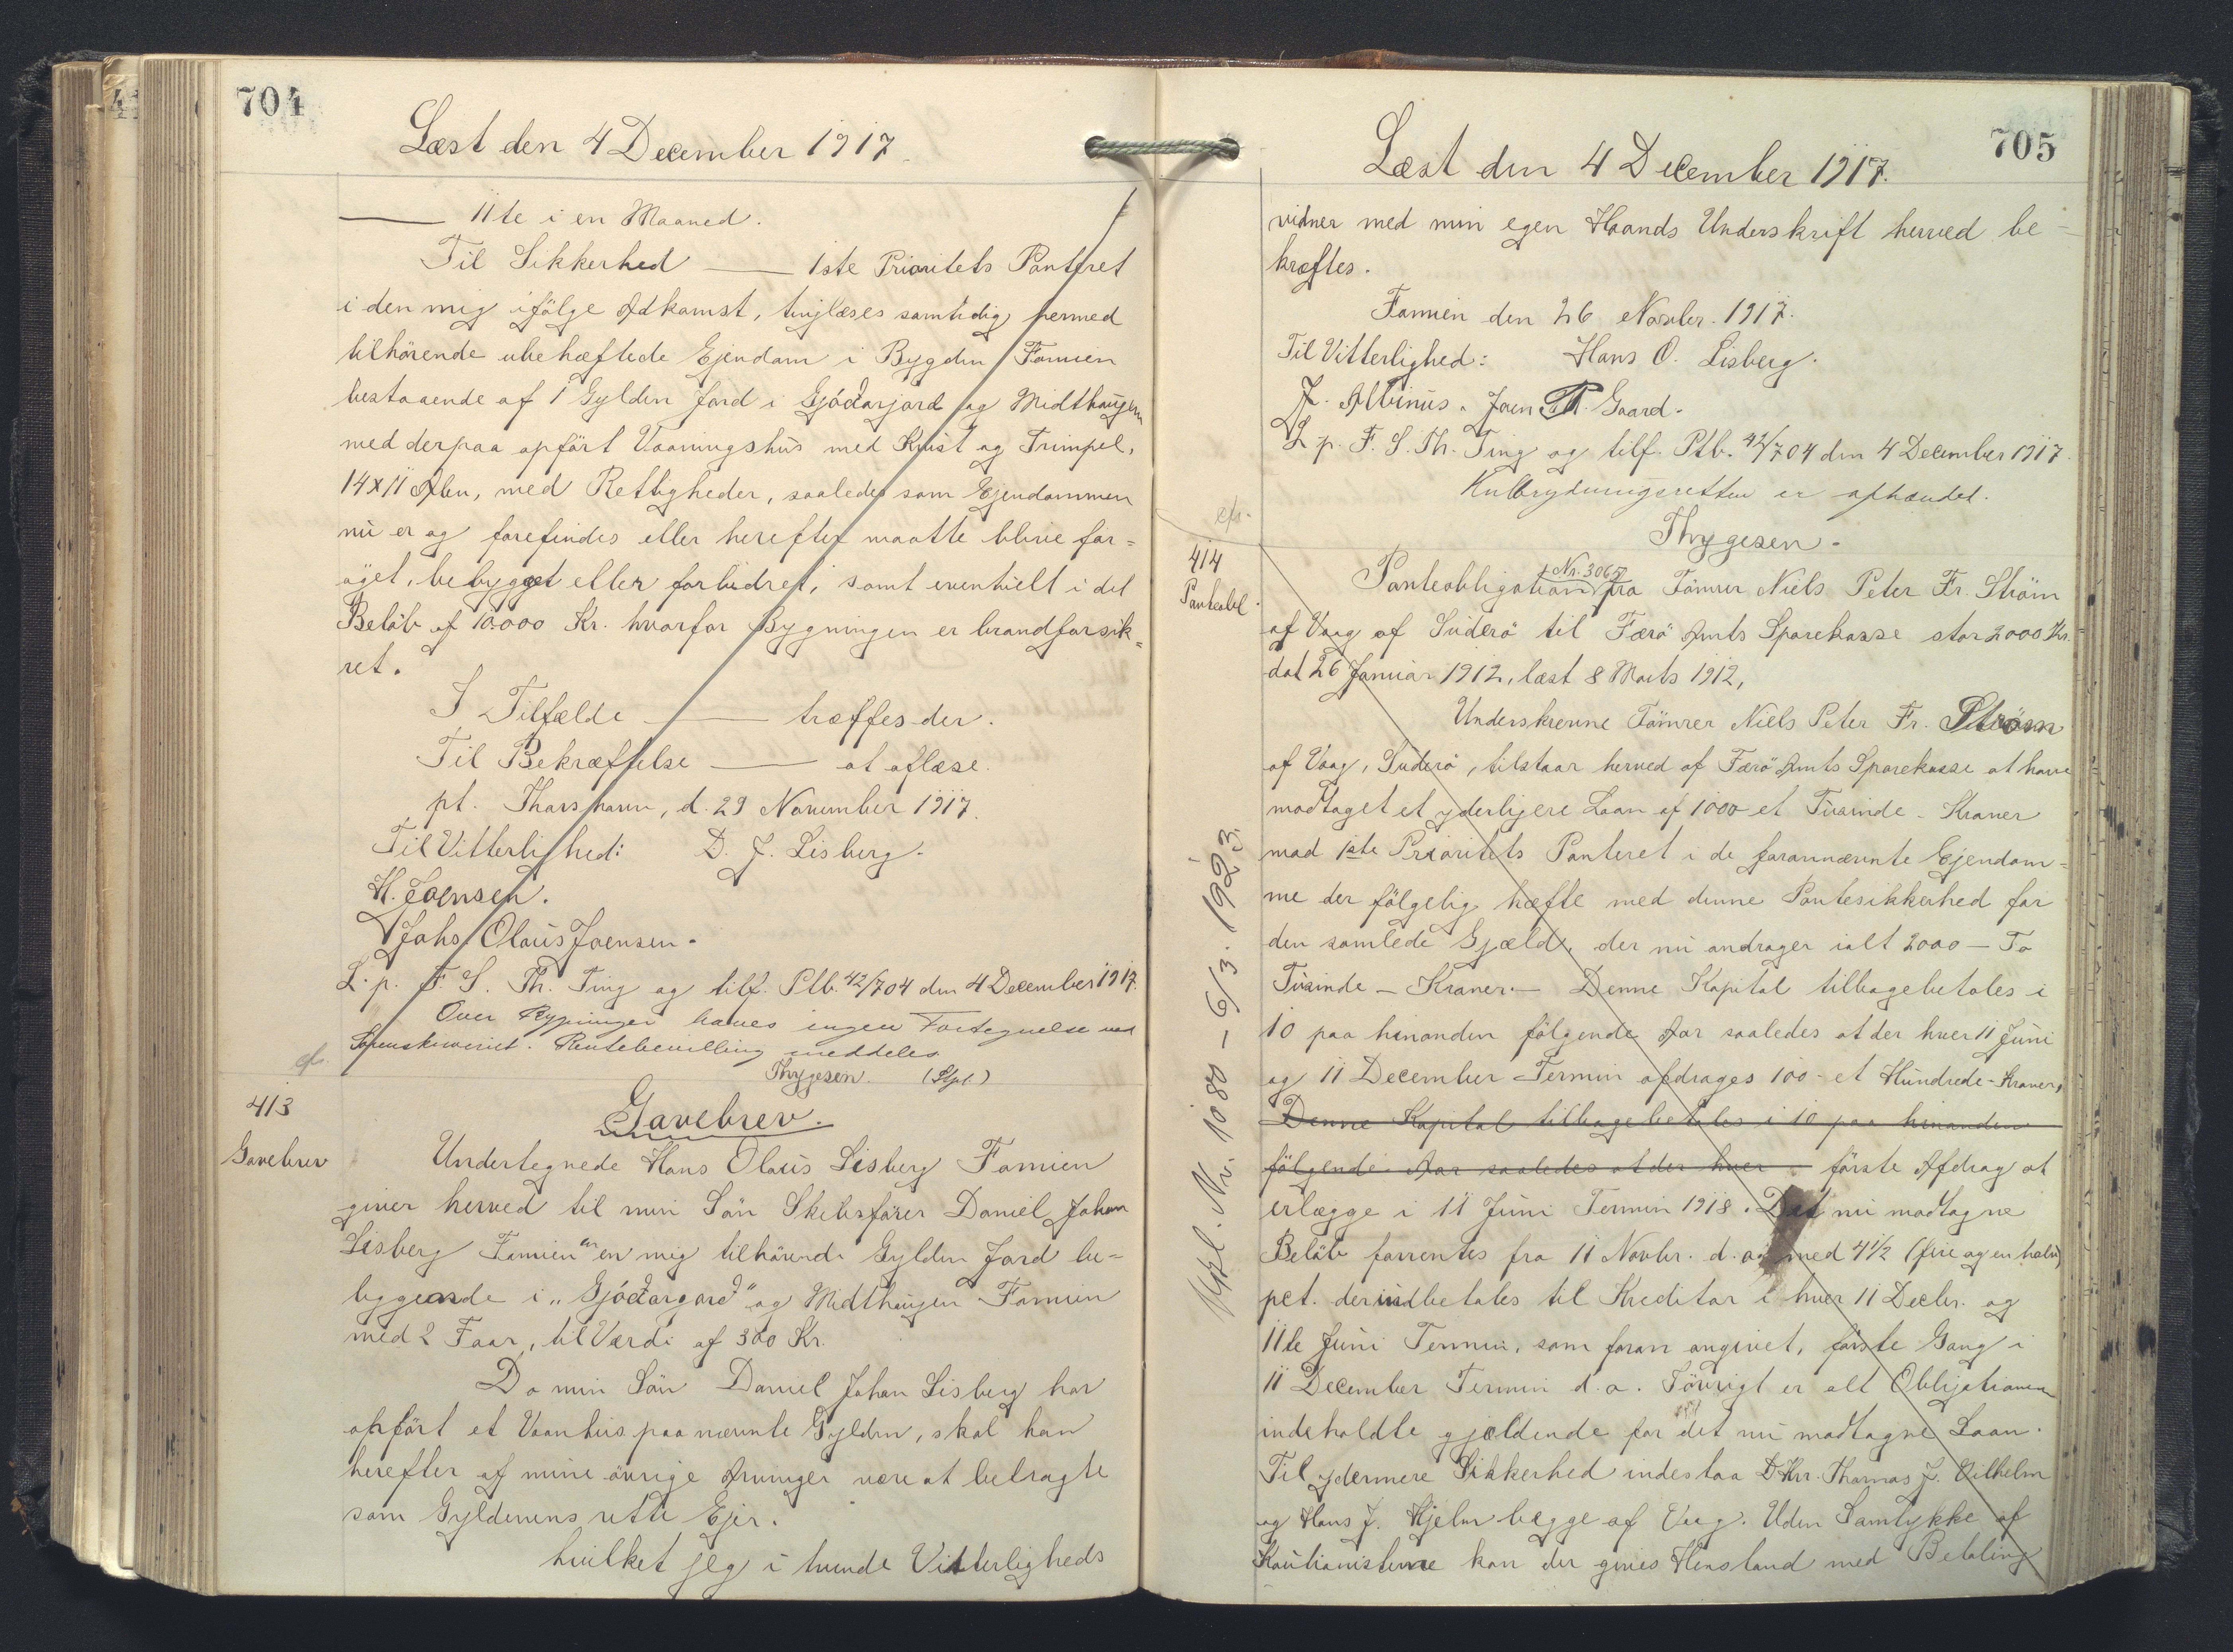 704
Læst den 4 December 1917.
—— 11te i en Maaned.
Til Sikkerhed —— 1ste Prioritets Panteret
i den mig ifölge Adkomst, tinglæses samtidig hermed
tilhörende ubehæftede Ejendom i Bygden Famien
bestaaende af 1 Gylden Jord i Gjóđarjord og Midthaugen
med derpaa opfört Vaaningshus med Kvist og Trimpel,
14x11 Alen, med Rettigheder, saaledes som Ejendommen
nu er og forefindes eller herefter maatte blive for=
öget, bebygget eller forbedret, samt eventuelt i det
Belöb af 10000 Kr. hvorfor Bygningen er brandforsik=
ret.
I Tilfælde —— træffes der.
Til Bekræftelse —— at aflæse.
pt. Thorshavn, d. 29 November 1917.
Til Vitterlighed: D. J. Lisberg.
H. Joensen.
Johs. Olaus Joensen.
L. p. F. S. Th. Ting og tilf. Ptb. 42/704 den 4 December 1917.
Over Bygninger haves ingen Fortegnelse ved
Sorenskriveriet. Pantebevilling meddeles
Thygesen. (Stpl.)
413
Gavebrev
Gavebrev.
Undertegnede Hans Olaus Lisberg Famien
giver herved til min Sön Skibsförer Daniel Johan
Lisberg Famien en mig tilhörende Gylden Jord be=
liggende i "Gjóđargard" og Midthaugen Famien
med 2 Faar, til Værdi af 300 Kr.
Da min Sön Daniel Johan Lisberg har
opfört et Vaanhus paa nævnte Gylden, skal han
herefter af mine övrige Arvinger være at betragte
som Gyldenens rette Ejer.
hvilket jeg i tvende Vitterligheds
705
Læst den 4 December 1917.
vidner med min egen Haands Underskrift herved be=
kræftes.
Famien den 26 Novbr. 1917.
Til Vitterlighed: Hans O. Lisberg.
J. Albinus. Joen P. Gaard.
L. p. F. S. Th. Ting og tilf. Ptb. 42/704 den 4 December 1917.
Kulbrydningsretten er afhændet.
Thygesen.
414
Panteobl.
Panteobligation Nr. 3065 fra Tömrer Niels Peter Fr. Ström
af Vaag af Suderö til Færö Amts Sparekasse stor 2000 Kr.
dat 26 Januar 1912, læst 8 Marts 1912,
Underskrevne Tömrer Niels Peter Fr. Ström
af Vaag, Suderö, tilstaar herved af Færö Amts Sparekasse at have
modtaget et yderligere Laan af 1000 et Tusinde Kroner
mod 1ste Prioritets Panteret i de forannævnte Ejendom=
me der fölgelig hæfte med denne Pantesikkerhed for
den samlede Gjæld, der nu andrager ialt 2000 — To
Tusinde — Kroner. — Denne Kapital tilbagebetales i
10 paa hinanden fölgende Aar saaledes at der hver 11 Juni
og 11 December Termin afdrages 100 - et Hundrede - Kroner,
Denne Kapital tilbagebetales i 10 paa hinanden
fölgende Aar saaledes at der hver förste Afdrag at
erlægge i 11 Juni Termin 1918. Det nu modtagne
Belöb forrentes fra 11 Novbr. d. a. med 4½ (fire og en halv)
pct. der indbetales til Kreditor i hver 11 Decbr. og
11te Juni Termin, som foran angivet, förste Gang i
11 December Termin d. a. Förvrigt er alt Obligationens
indeholdte gjældende for det nu modtagne Laan.
Til ydermere Sikkerhed indestaa D'Hrr. Thomas J. Vilhelm
og Hans J. Hjelm begge af Vaag. Uden Samtykke af
Kautionisterne kan der gives Henstand med Betaling
Nr. 1080 — 6/3. 1923.